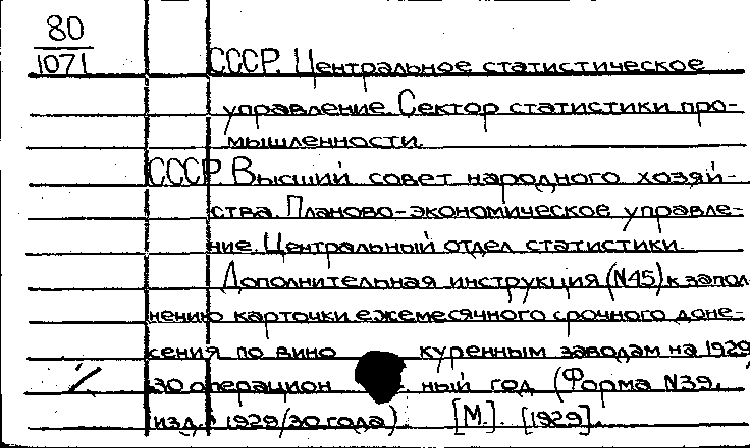 80
1071
СССР. Центральное статистическое
управление. Сектор статистики про-
мышленности.
СССР. Высший совет народного хозяй-
ства. Планово-экономическое управле-
ние. Центральный отдел статистики.
Дополнительная инструкция (N45) к запол
нению карточки ежемесячного срочного доне-
сения по вино куренным заводам на 1929
30 операцион ный год (Форма N39,
изд. 1929/30 года). [М]. [1929].